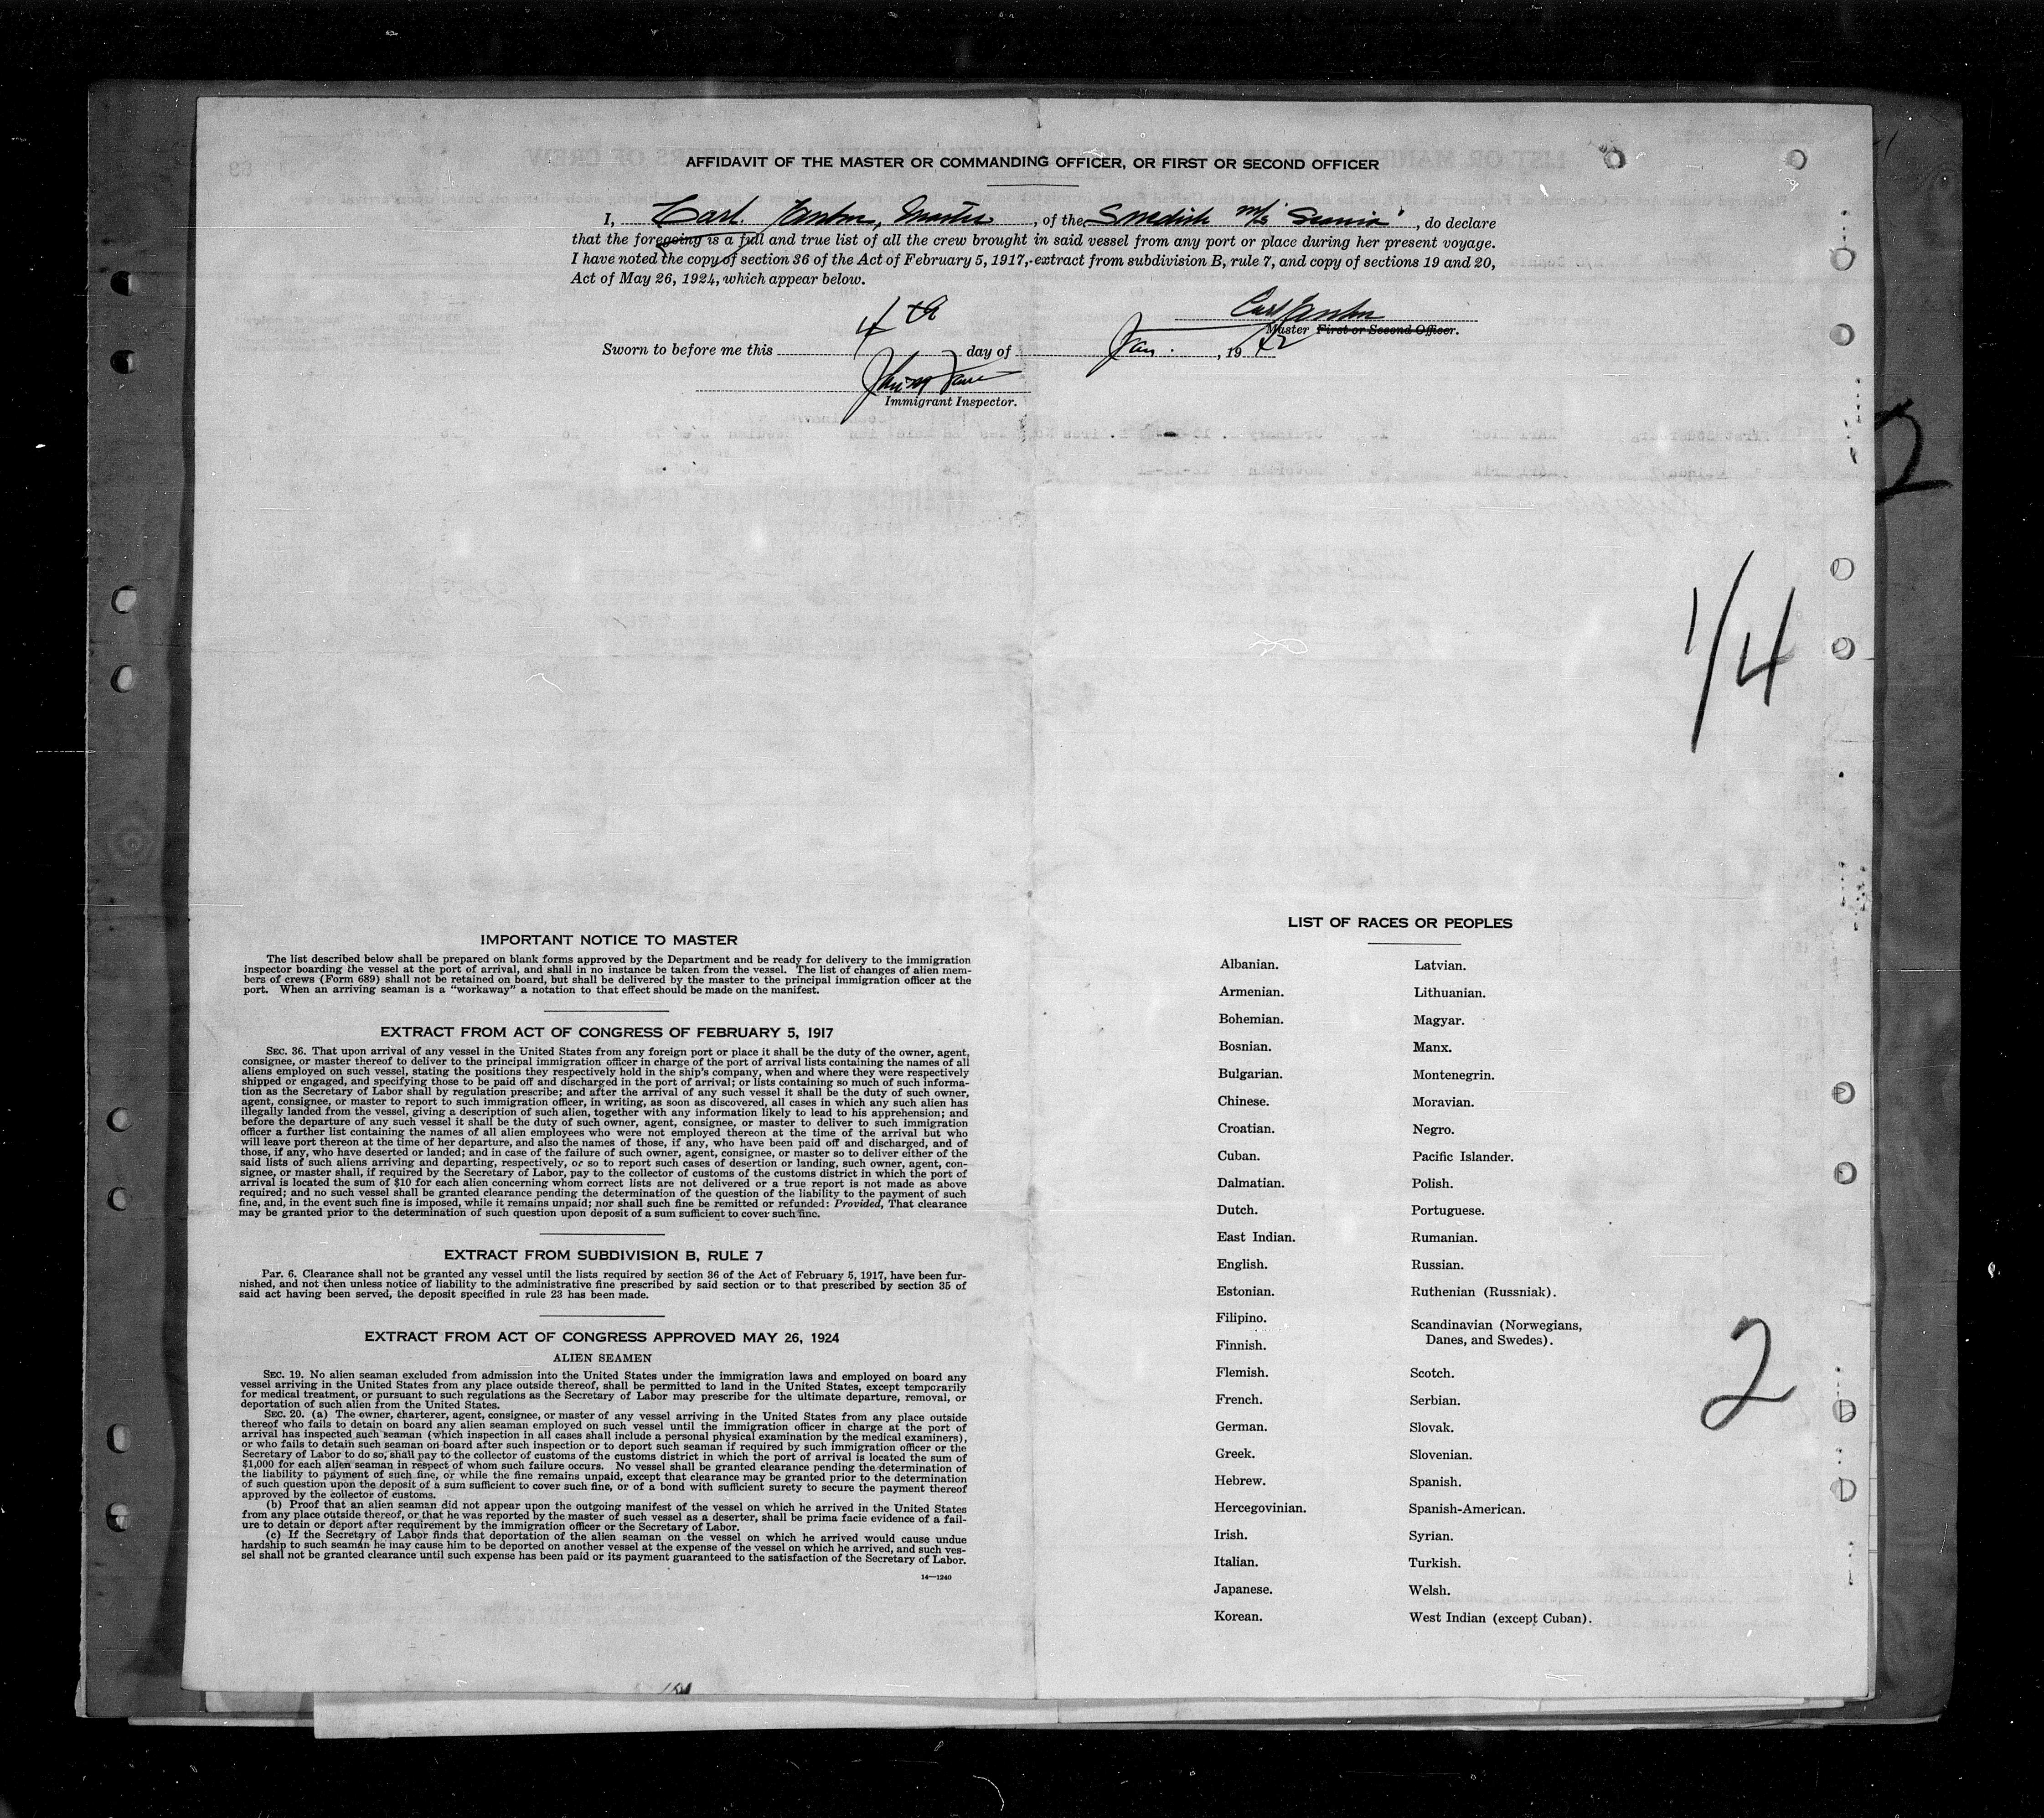 AFFIDAVIT OF THE MASTER OR COMMANDING OFFICER, OR FIRST OR SECOND OFFICER
I, Carl , Master , of the Swedish m/s , do declare
that the foregoing is a full and true list of all the crew brought in said vessel from any port or place during her present voyage.
I have noted the copy of section 36 of the Act of February 5, 1917, extract from subdivision B, rule 7, and copy of sections 19 and 20,
Act of May 26, 1924, which appear below.
Carl
Master First or Second Officer.
Sworn to before me this 4th day of Jan. , 19 42
Immigrant Inspector.
2
1/4
IMPORTANT NOTICE TO MASTER
The list described below shall be prepared on blank forms approved by the Department and be ready for delivery to the immigration
inspector boarding the vessel at the port of arrival, and shall in no instance be taken from the vessel. The list of changes of alien mem-
bers of crews (Form 689) shall not be retained on board, but shall be delivered by the master to the principal immigration officer at the
port. When an arriving seaman is a "workaway" a notation to that effect should be made on the manifest.
EXTRACT FROM ACT OF CONGRESS OF FEBRUARY 5, 1917
SEC. 36. That upon arrival of any vessel in the United States from any foreign port or place it shall be the duty of the owner, agent,
consignee, or master thereof to deliver to the principal immigration officer in charge of the port of arrival lists containing the names of all
aliens employed on such vessel, stating the positions they respectively hold in the ship's company, when and where they were respectively
shipped or engaged, and specifying those to be paid off and discharged in the port of arrival; or lists containing so much of such informa-
tion as the Secretary of Labor shall by regulation prescribe; and after the arrival of any such vessel it shall be the duty of such owner,
agent, consignee, or master to report to such immigration officer, in writing, as soon as discovered, all cases in which any such alien has
illegally landed from the vessel, giving a description of such alien, together with any information likely to lead to his apprehension; and
before the departure of any such vessel it shall be the duty of such owner, agent, consignee, or master to deliver to such immigration
officer a further list containing the names of all alien employees who were not employed thereon at the time of the arrival but who
will leave port thereon at the time of her departure, and also the names of those, if any, who have been paid off and discharged, and of
those, if any, who have deserted or landed; and in case of the failure of such owner, agent, consignee, or master so to deliver either of the
said lists of such aliens arriving and departing, respectively, or so to report such cases of desertion or landing, such owner, agent, con-
signee, or master shall, if required by the Secretary of Labor, pay to the collector of customs of the customs district in which the port of
arrival is located the sum of $10 for each alien concerning whom correct lists are not delivered or a true report is not made as above
required; and no such vessel shall be granted clearance pending the determination of the question of the liability to the payment of such
fine, and, in the event such fine is imposed, while it remains unpaid; nor shall such fine be remitted or refunded: Provided, That clearance
may be granted prior to the determination of such question upon deposit of a sum sufficient to cover such fine.
EXTRACT FROM SUBDIVISION B, RULE 7
Par. 6. Clearance shall not be granted any vessel until the lists required by section 36 of the Act of February 5, 1917, have been fur-
nished, and not then unless notice of liability to the administrative fine prescribed by said section or to that prescribed by section 35 of
said act having been served, the deposit specified in rule 23 has been made.
EXTRACT FROM ACT OF CONGRESS APPROVED MAY 26, 1924
ALIEN SEAMEN
SEC. 19. No alien seaman excluded from admission into the United States under the immigration laws and employed on board any
vessel arriving in the United States from any place outside thereof, shall be permitted to land in the United States, except temporarily
for medical treatment, or pursuant to such regulations as the Secretary of Labor may prescribe for the ultimate departure, removal, or
deportation of such alien from the United States.
SEC. 20. (a) The owner, charterer, agent, consignee, or master of any vessel arriving in the United States from any place outside
thereof who fails to detain on board any alien seaman employed on such vessel until the immigration officer in charge at the port of
arrival has inspected such seaman (which inspection in all cases shall include a personal physical examination by the medical examiners),
or who fails to detain such seaman on board after such inspection or to deport such seaman if required by such immigration officer or the
Secretary of Labor to do so, shall pay to the collector of customs of the customs district in which the port of arrival is located the sum of
$1,000 for each alien seaman in respect of whom such failure occurs. No vessel shall be granted clearance pending the determination of
the liability to payment of such fine, or while the fine remains unpaid, except that clearance may be granted prior to the determination
of such question upon the deposit of a sum sufficient to cover such fine, or of a bond with sufficient surety to secure the payment thereof
approved by the collector of customs.
(b) Proof that an alien seaman did not appear upon the outgoing manifest of the vessel on which he arrived in the United States
from any place outside thereof, or that he was reported by the master of such vessel as a deserter, shall be prima facie evidence of a fail-
ure to detain or deport after requirement by the immigration officer or the Secretary of Labor.
(c) If the Secretary of Labor finds that deportation of the alien seaman on the vessel on which he arrived would cause undue
hardship to such seaman he may cause him to be deported on another vessel at the expense of the vessel on which he arrived, and such ves-
sel shall not be granted clearance until such expense has been paid or its payment guaranteed to the satisfaction of the Secretary of Labor.
14—1240
LIST OF RACES OR PEOPLES
Albanian.
Armenian.
Bohemian.
Bosnian.
Bulgarian.
Chinese.
Croatian.
Cuban.
Dalmatian.
Dutch.
East Indian.
English.
Estonian.
Filipino.
Finnish.
Flemish.
French.
German.
Greek.
Hebrew.
Hercegovinian.
Irish.
Italian.
Japanese.
Korean.
Latvian.
Lithuanian.
Magyar.
Manx.
Montenegrin.
Moravian.
Negro.
Pacific Islander.
Polish.
Portuguese.
Rumanian.
Russian.
Ruthenian (Russniak).
Scandinavian (Norwegians,
Danes, and Swedes).
Scotch.
Serbian.
Slovak.
Slovenian.
Spanish.
Spanish-American.
Syrian.
Turkish.
Welsh.
West Indian (except Cuban).
2